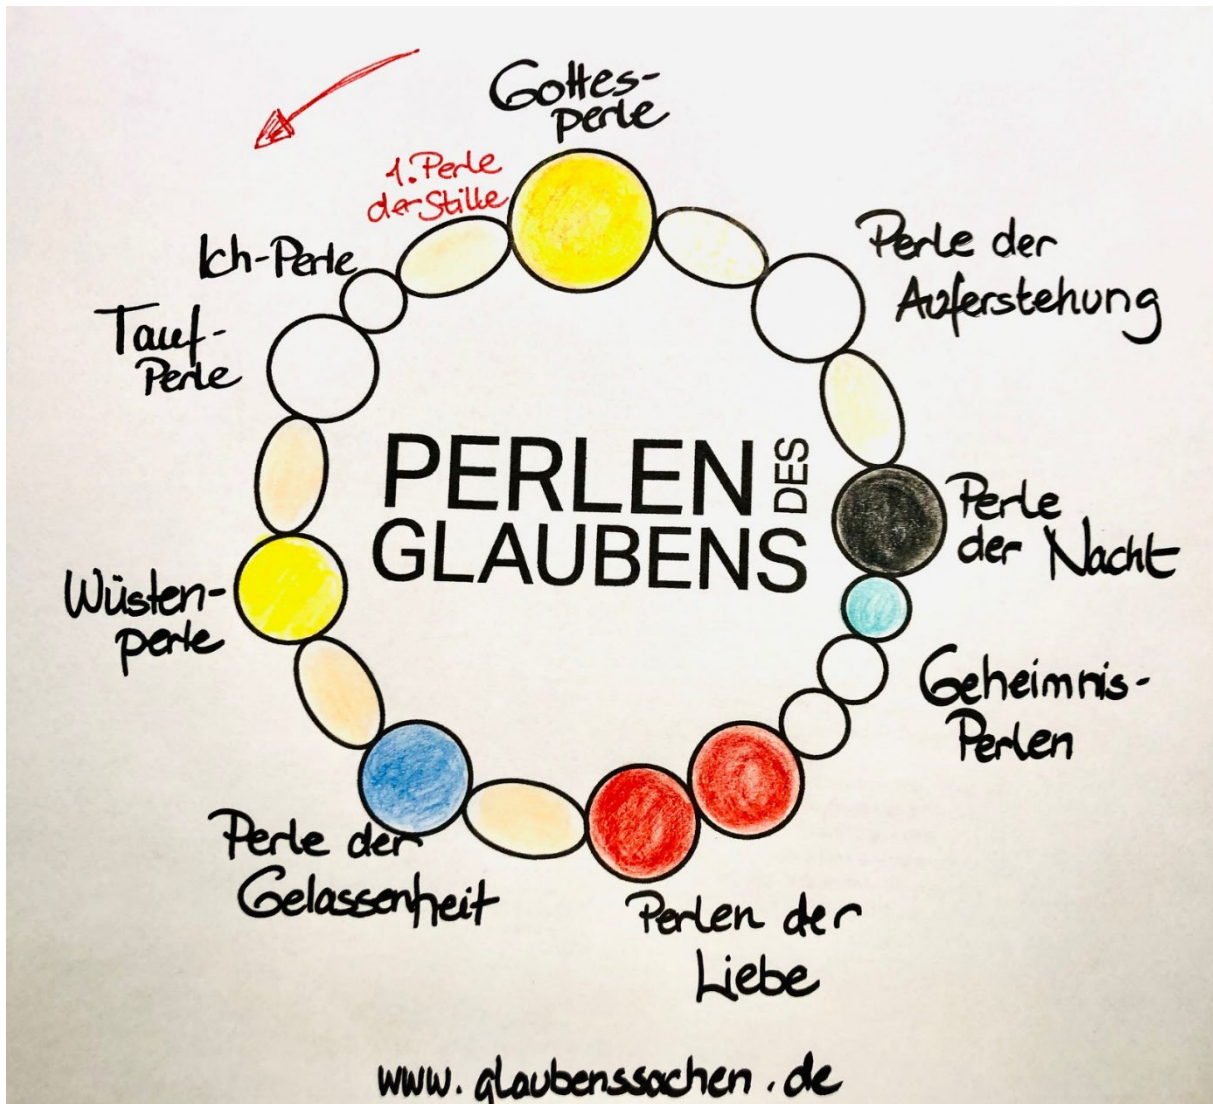 Gottes-
perle
1. Perle
der Stille
Ich-Perle
Tauf-
Perle
Perle der
Auferstehung
PERLEN DES
GLAUBENS
Perle
der Nacht
Wüsten-
perle
Geheimnis-
Perlen
Perle der
Gelassenheit
Perlen der
Liebe
www.glaubenssachen.de